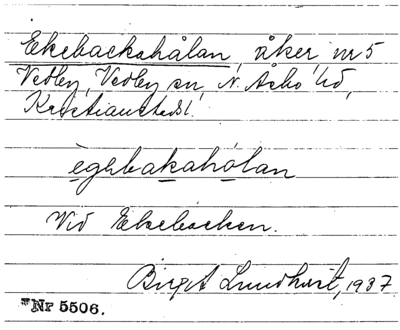 Ekebackahålan, åker, nr 5
Vedby, Vedby sn, N. Åsbo hd,
Kristianstads l.
ègəbakahólan
Vid Ekebacken.
Birgit Lundkvist, 1937
*Nr 5506.